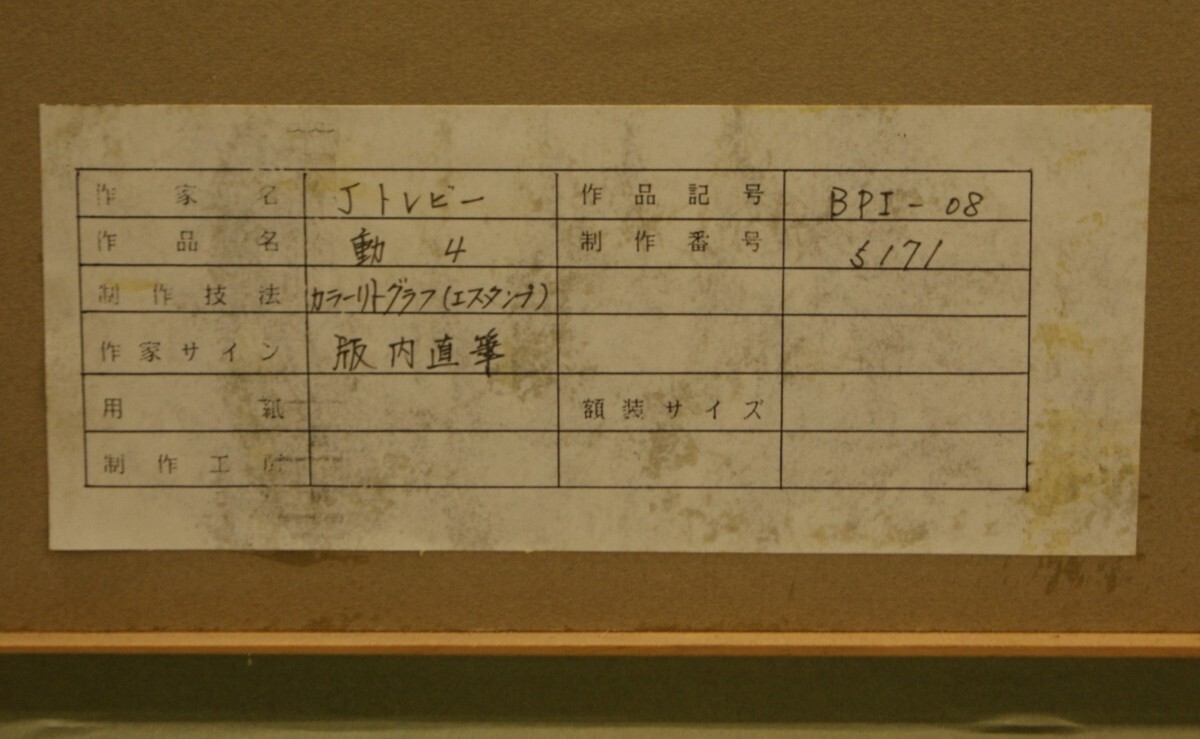 作家名 Jトレビー 作品記号 BPI-08
作品名 動 4 制作番号 5171
制作技法 カラーリトグラフ(エスタンプ)
作家サイン 版内直筆
用紙 額装サイズ
制作工所